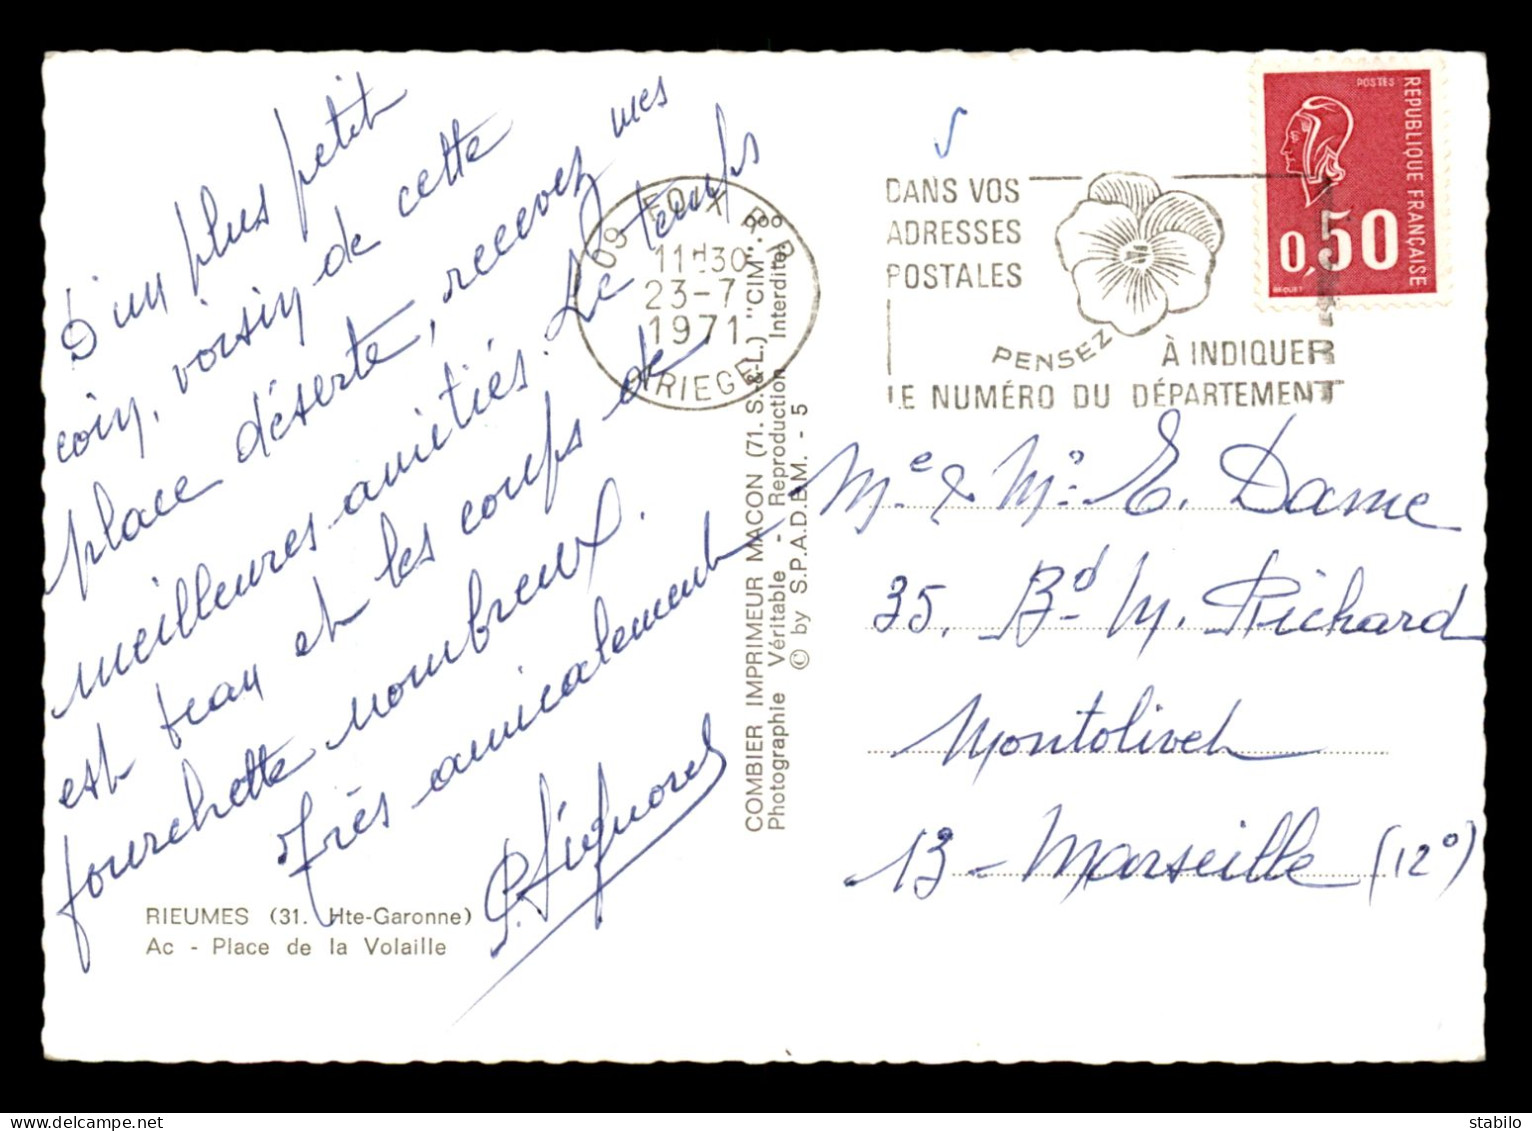 D'un plus petit
coin, voisin de cette
place déserte, recevez mes
meilleures amitiés. Le temps
est beau et les coups de
fourchette nombreux.
Très amicalement
RIEUMES (31. Hte-Garonne)
Ac - Place de la Volaille
COMBIER IMPRIMEUR MACON (71. S.-&-L.) "CIM".
Photographie Véritable - Reproduction Interdite
© by S.P.A.D.E.M. - 5
09 FOIX R.P.
11H30
23-7
1971
ARIEGE
DANS VOS
ADRESSES
POSTALES
PENSEZ
À INDIQUER
LE NUMÉRO DU DÉPARTEMENT
POSTES
REPUBLIQUE FRANÇAISE
0,50
BEQUET
Me & Mr E. Dame
35, Bd M. Richard
Montolivet
13 - Marseille (12e)
delcampe.net
Stabilo